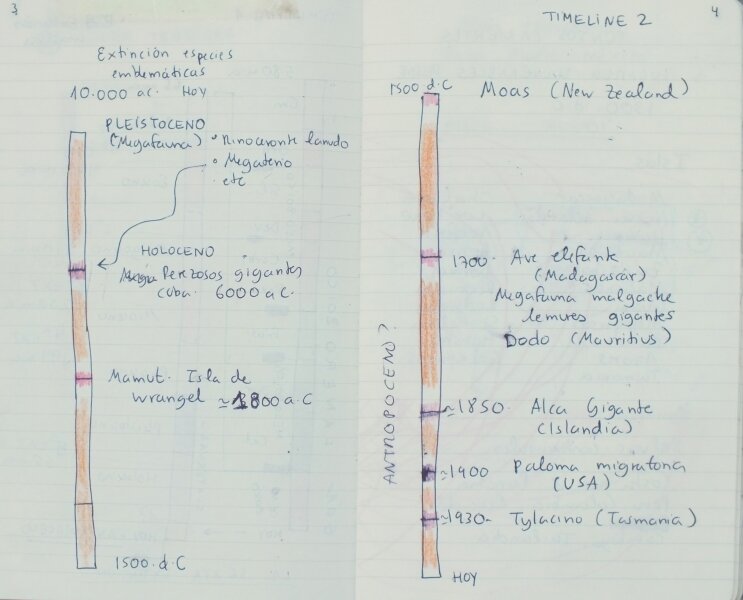 3
Extinción especies
emblemáticas
10.000 a.c. HOY
PLEISTOCENO
(Megafauna)
• Rinoceronte lanudo
• Megaterio
• etc
HOLOCENO
Perezosos gigantes
Cuba. 6000 a.C.
Mamut. Isla de
wrangel ≃1800 a.C
1500.d.C
4
TIMELINE 2
1500 d.C
Moas (New Zealand)
1700. Ave elefante
(Madagascar)
Megafauna malgache
lemures gigantes
Dodo (Mauritius)
ANTROPOCENO?
≃1850. Alca Gigante
(Islandia)
≃1900 Paloma migratoria
(USA)
≃1930- Tylacino (Tasmania)
HOY